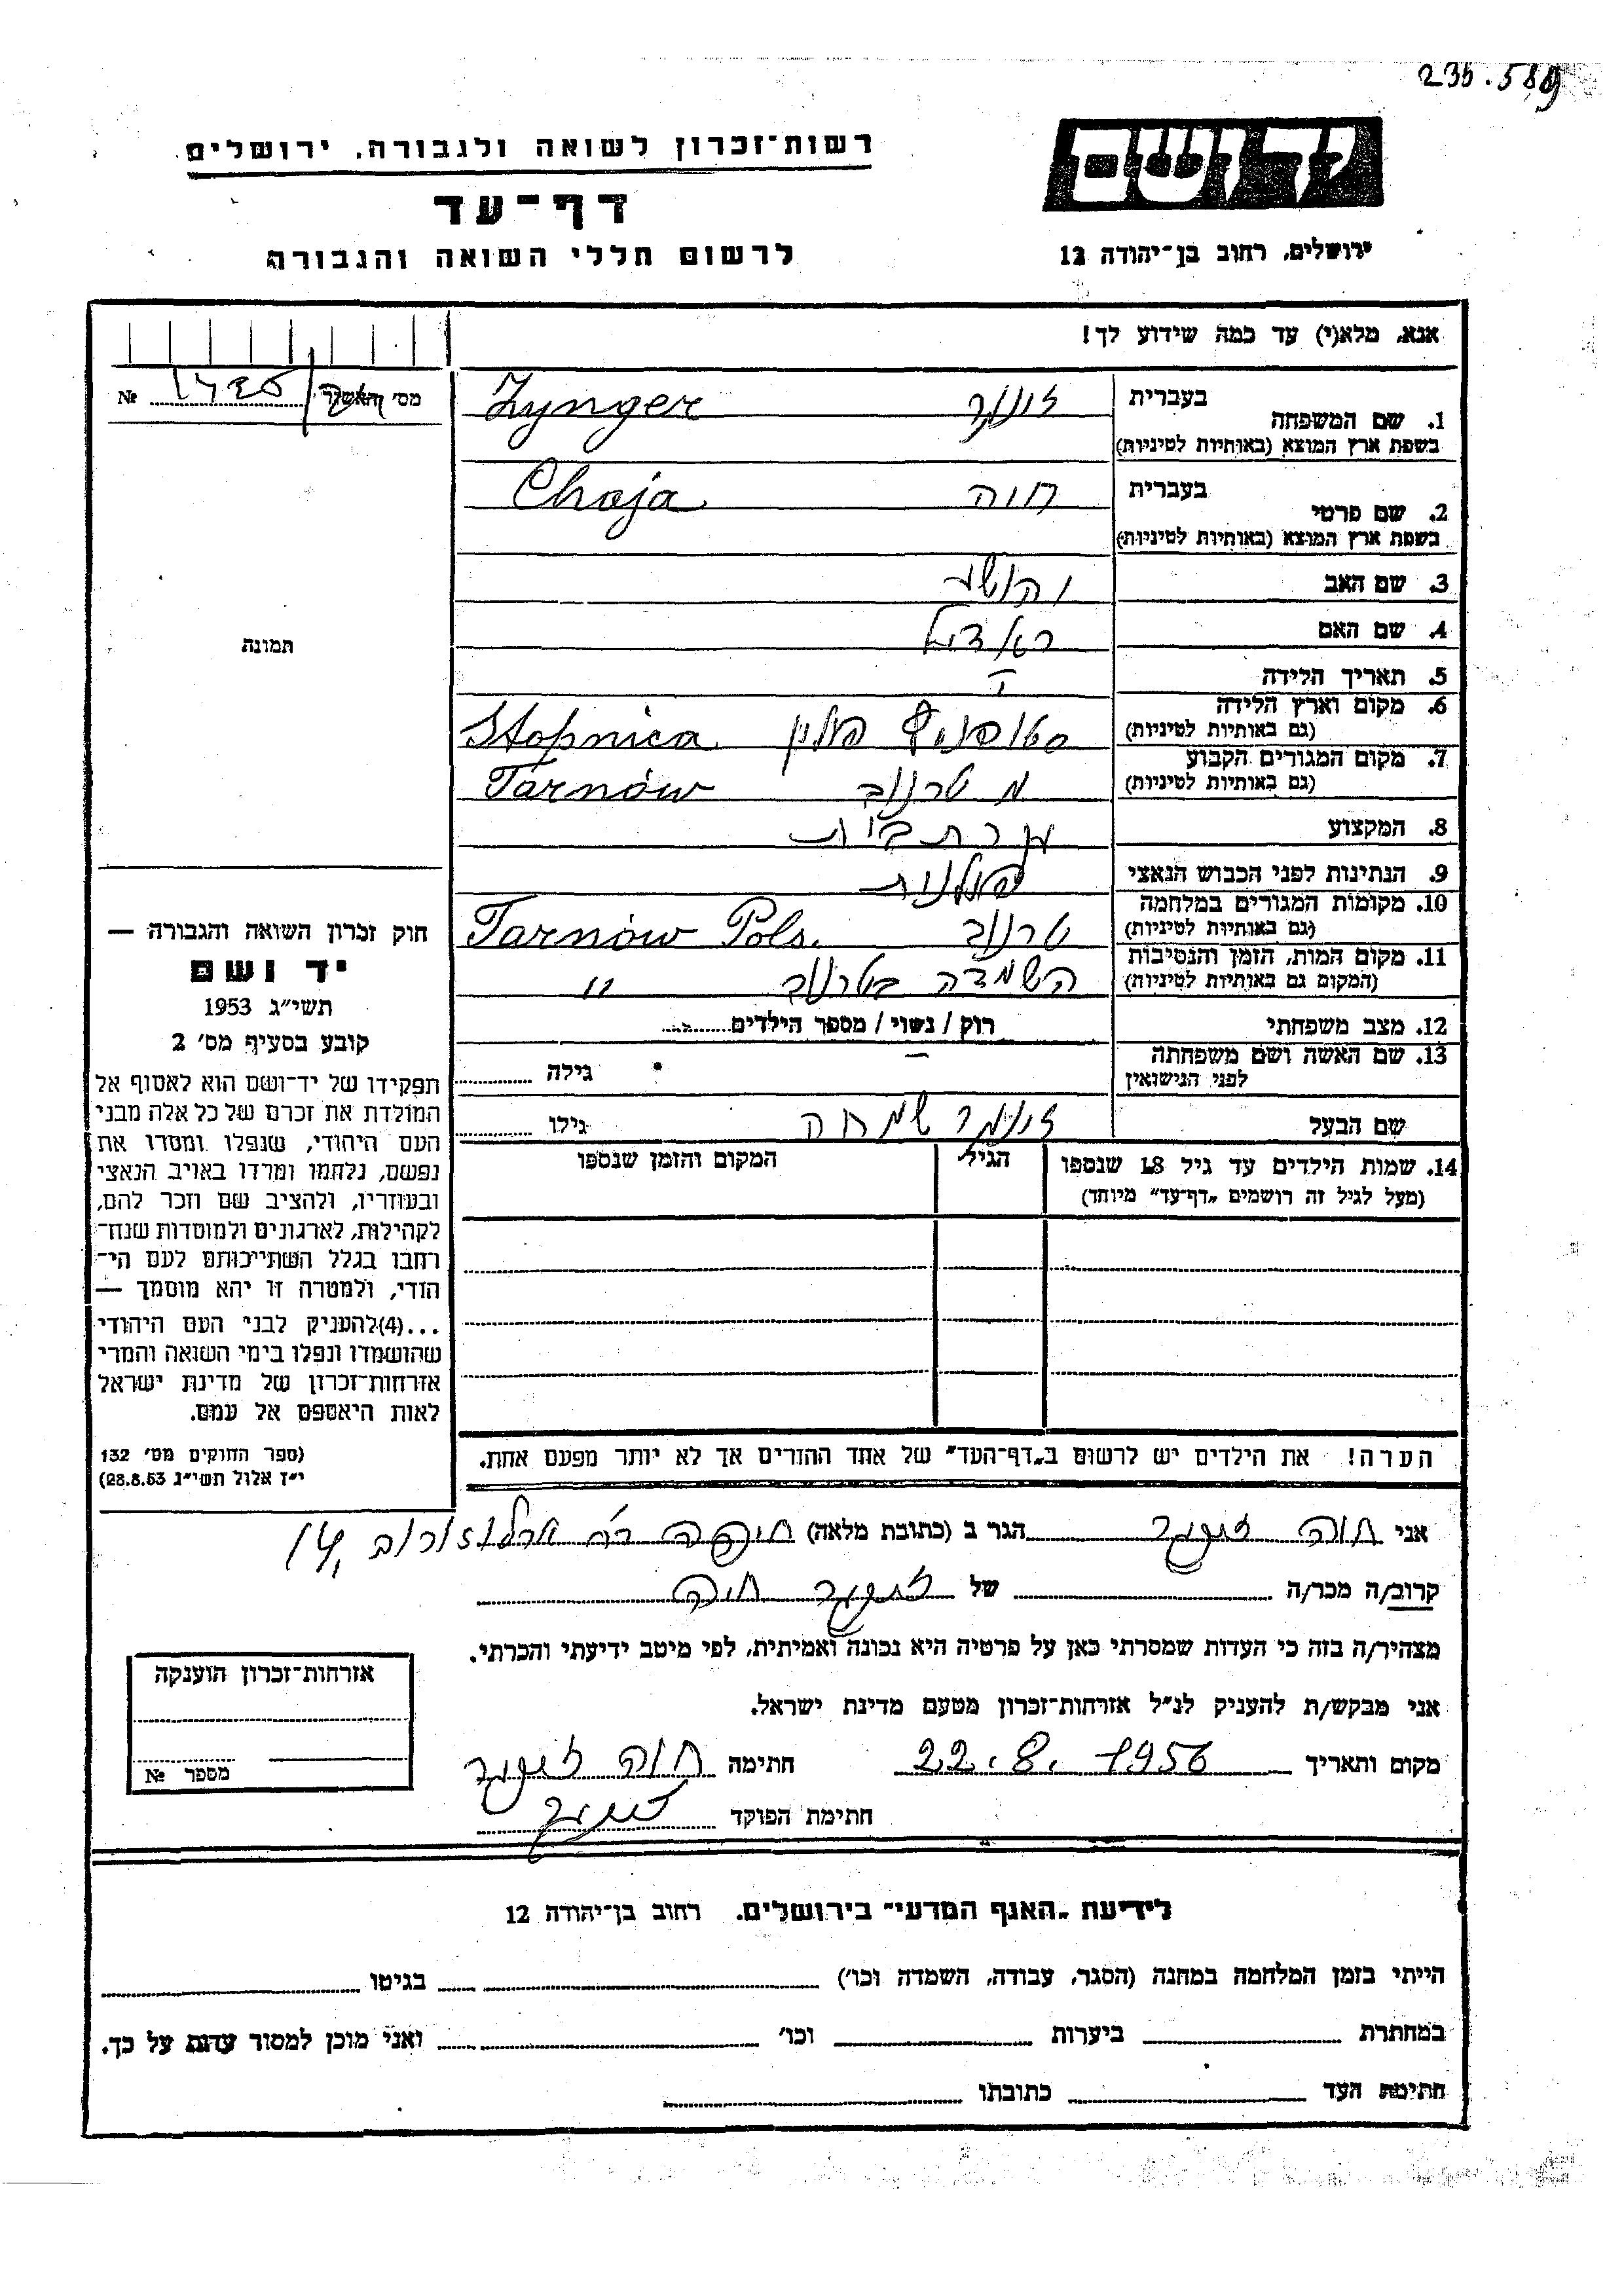 236.589
רשות־זכרון לשואה ולגבורה, ירושלים
יד ושם
דף־עד
לרשום חללי השואה והגבורה
ירושלים, רחוב בן־יהודה 12
אנא, מלא(י) עד כמה שידוע לך!
מס׳ № 
1. שם המשפחה
בעברית זינגר Zynger
בשפת ארץ המוצא (באותיות לטיניות)
2. שם פרטי
בעברית חיה Chaja
בשפת ארץ המוצא (באותיות לטיניות)
3. שם האב יהושע
4. שם האם
5. תאריך הלידה
6. מקום וארץ הלידה פולין Stopnica
(גם באותיות לטיניות)
7. מקום המגורים הקבוע טרנוב Tarnów
(גם באותיות לטיניות)
8. המקצוע עקרת בית
9. הנתינות לפני הכבוש הנאצי פולנית
10. מקומות המגורים במלחמה טרנוב Tarnów Pols.
(גם באותיות לטיניות)
11. מקום המות, הזמן והנסיבות השמדה בטרנוב
(המקום גם באותיות לטיניות)
12. מצב משפחתי רוק / נשוי / מספר הילדים
13. שם האשה ושם משפחתה – גילה
לפני הנישואין
שם הבעל זינגר שמחה גילו
14. שמות הילדים עד גיל 18 שנספו הגיל המקום והזמן שנספו
(מעל לגיל זה רושמים „דף־עד״ מיוחד)
הערה! את הילדים יש לרשום ב„דף־העד״ של אחד ההורים אך לא יותר מפעם אחת.
תמונה
חוק זכרון השואה והגבורה —
יד ושם
תשי״ג 1953
קובע בסעיף מס׳ 2
תפקידו של יד־ושם הוא לאסוף אל
המולדת את זכרם של כל אלה מבני
העם היהודי, שנפלו ומסרו את
נפשם, נלחמו ומרדו באויב הנאצי
ובעוזריו, ולהציב שם וזכר להם,
לקהילות, לארגונים ולמוסדות שנח־
רחבו בגלל השתייכותם לעם הי־
הודי, ולמטרה זו יהא מוסמך —
...(4)להעניק לבני העם היהודי
שהושמדו ונפלו בימי השואה והמרי
אזרחות־זכרון של מדינת ישראל
לאות היאספם אל עמם.
(ספר החוקים מס׳ 132
י״ז אלול תשי״ג 28.8.53)
אני חוה זינגר הגר ב (כתובת מלאה) חיפה רח׳ ארלוזורוב 14,
קרוב/ה מכר/ה של זינגר חיה
מצהיר/ה בזה כי העדות שמסרתי כאן על פרטיה היא נכונה ואמיתית, לפי מיטב ידיעתי והכרתי.
אני מבקש/ת להעניק לנ״ל אזרחות־זכרון מטעם מדינת ישראל.
מקום ותאריך 22.8.1956 חתימה חוה זינגר
חתימת הפוקד
אזרחות־זכרון הוענקה
מספר №
לידיעת „האגף המדעי״ בירושלים. רחוב בן־יהודה 12
הייתי בזמן המלחמה במחנה (הסגר, עבודה, השמדה וכו׳) בגיטו
במחתרת ביערות וכו׳ ואני מוכן למסור עדות על כך.
חתימת העד כתובתו